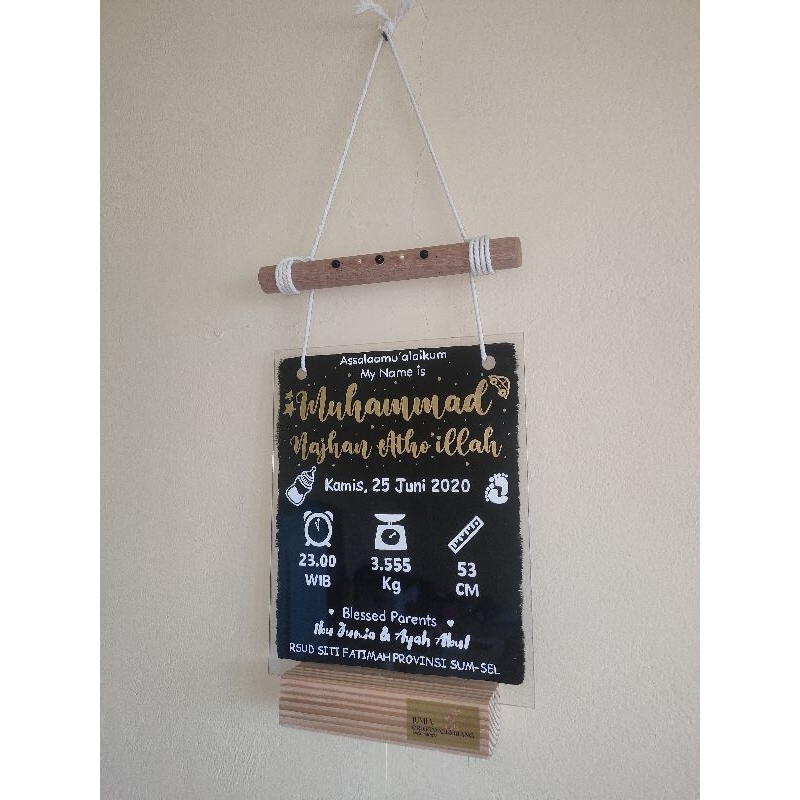 Assalaamu'alaikum
My Name is
Muhammad
Najhan Atho'illah
Kamis, 25 Juni 2020
23.00
WIB
3.555
Kg
53
CM
Blessed Parents
Ibu Jumia & Ayah
RSUD SITI FATIMAH PROVINSI SUM-SEL